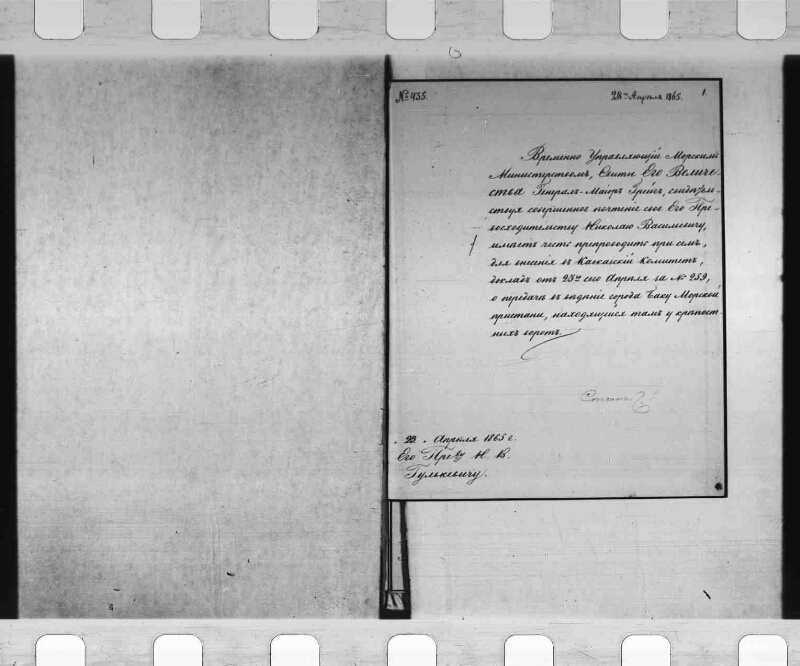 № 455.
28го Апреля 1865.
1.
Временно Управляющій Морскимъ
Министерствомъ, Свиты Его Величе-
ства Генералъ-Маіоръ Грейгъ, свидѣтель-
ствуя совершенное почтеніе свое Его Пре-
восходительству Николаю Васильевичу,
имѣетъ честь препроводить при семъ,
для внесенія въ Кавказскій Комитетъ,
докладъ отъ 25го сего Апрѣля за № 259,
о передачѣ въ вѣдѣніе города Баку Морской
пристани, находящейся тамъ у крѣпост-
ныхъ воротъ.
Апрѣля 1865 г.
Его Прев-ву Н. В.
Гулькевичу.